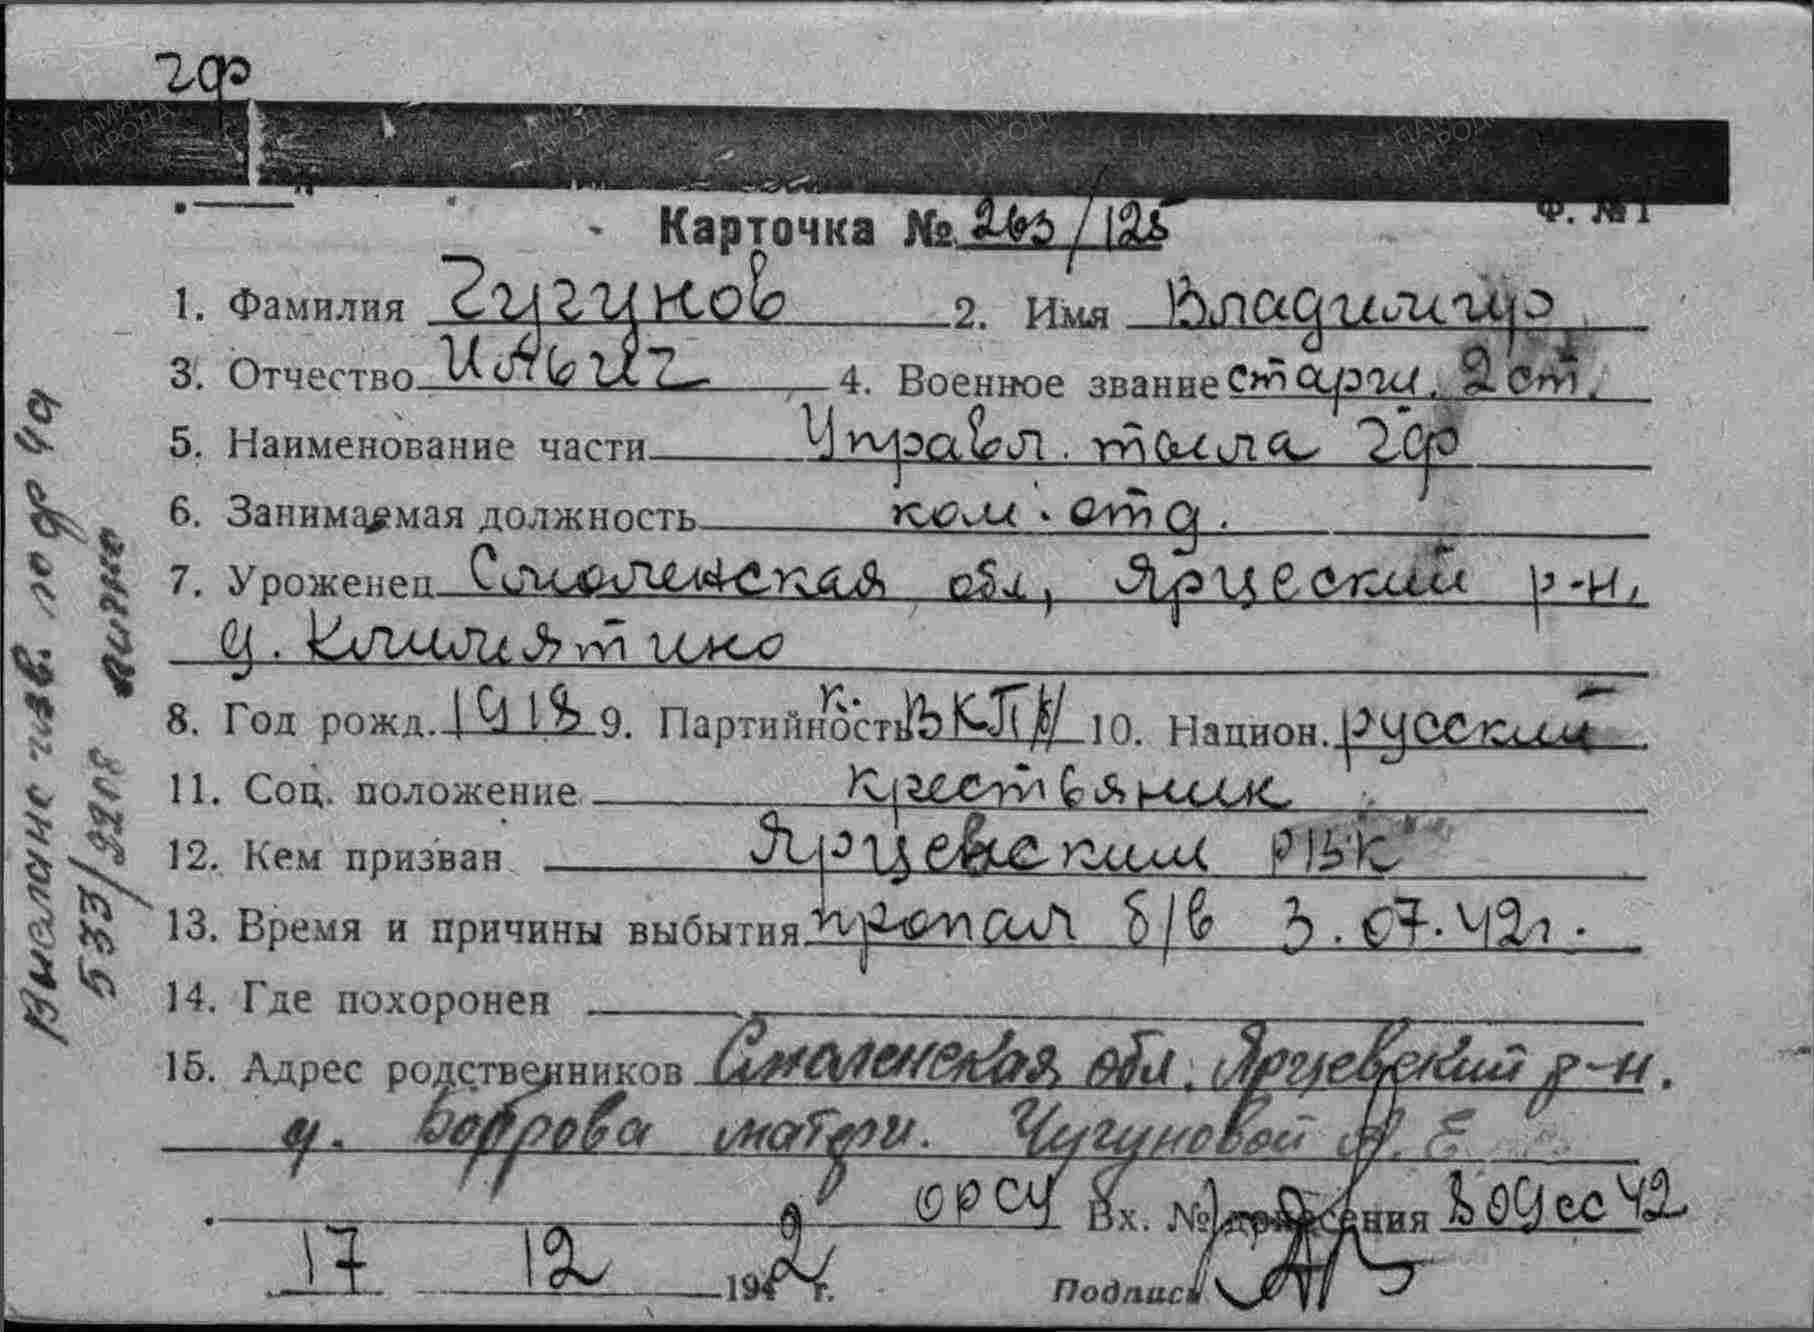 чф
Ф. №1
Карточка № 263/125
1. Фамилия Чугунов 2. Имя Владимир
3. Отчество Ильич 4. Военное звание старш. 2 ст.
5. Наименование части Управл. тыла чф
6. Занимаемая должность ком. отд.
7. Уроженец Смоленская обл, Ярцеский р-н,
д. Климятино
8. Год рожд. 1918 9. Партийность к. ВКП/б/ 10. Национ. русский
11. Соц. положение крестьяник
12. Кем призван Ярцевским РВК
13. Время и причины выбытия пропал б/в 3.07.42г.
14. Где похоронен
15. Адрес родственников Смоленская обл. Ярцевский р-н.
д. Боброва матери. Чугуновой А. Е
орсу Вх. № донесения 809сс 42
17 12 1942 г. Подпись
Выслано изв. по ф 4а
533/9208